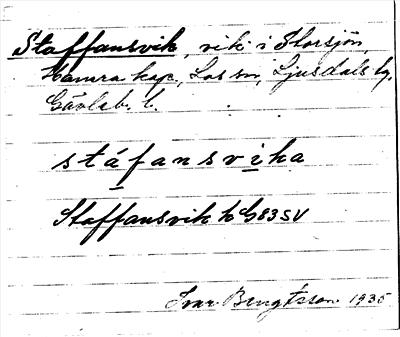 Staffansvik, vik i Storsjön,
Hamra kap., Los sn, Ljusdals tg,
Gävleb. l.
stáfansvika
Staffansvik k G83SV
Ivar Bengtsson 1935